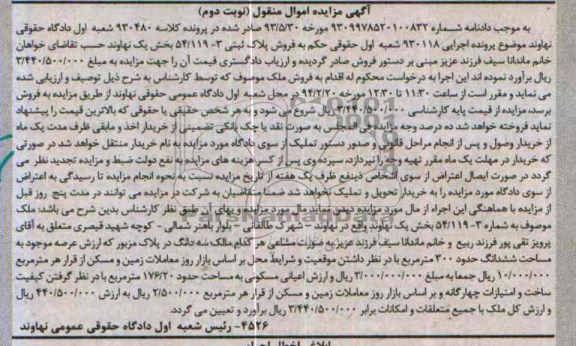 آگهی مزایده اموال منقول (نوبت دوم)
به موجب دادنامه شماره ۹۳۰۹۹۷۸۵۲۰۱۰۰۸۳۲ مورخه ۹۳/۵/۳۰ صادر شده در پرونده کلاسه ۹۳۰۴۸۰ شعبه اول دادگاه حقوقی
نهاوند موضوع پرونده اجرایی ۹۳۰۱۱۸ شعبه اول حقوقی حکم به فروش پلاک ثبتی ۳- ۵۴/۱۱۹ بخش یک نهاوند حسب تقاضای خواهان
خانم ماندانا سیف فرزند عزیز مبنی بر دستور فروش صادر گردیده و ارزیاب دادگستری قیمت آن را جهت مزایده به مبلغ ۳/۴۴۰/۵۰۰/۰۰۰
ریال برآورد نموده اند این اجرا به درخواست محکوم له اقدام به فروش ملک موصوف که توسط کارشناس به شرح ذیل توصیف و ارزیابی شده
می نماید و مقرر است از ساعت ۱۱:۳۰ تا ۱۲:۳۰ مورخه ۹۴/۲/۲۰ در محل شعبه اول دادگاه عمومی حقوقی نهاوند از طریق مزایده به فروش
برسد، مزایده از قیمت پایه کارشناسی ریال شروع می شود و به هر شخص حقیقی یا حقوقی که بالاترین قیمت را پیشنهاد
نماید فروخته خواهد شد ده درصد وجه مزایده فی المجلس به صورت نقد یا چک بانکی تضمینی از خریدار اخذ و مابقی ظرف مدت یک ماه
از خریدار وصول و پس از انجام مراحل قانونی و صدور دستور تملیک از سوی دادگاه مورد مزایده به نام خریدار منتقل خواهد شد در صورتی
که خریدار در مهلت یک ماه مقرر تهیه وجه را نپردازد، سپرده وی پس از کسر هزینه های مزایده به نفع دولت ضبط و مزایده تجدید نظر می
گردد در صورت ایصال اعتراض از سوی اشخاص ذینفع ظرف یک هفته از تاریخ مزایده نسبت به نحوه انجام مزایده تا رسیدگی به اعتراض
از سوی دادگاه مورد مزایده را به خریدار تحویل و تملیک نخواهد شد ضمنا متقاضیان به شرکت در مزایده می توانند در مدت پنج روز قبل
از مزایده با هماهنگی این اجراء از مال مورد مزایده دیدن نمایند مال مورد مزایده و بهای آن طبق نظر کارشناس بدین شرح می باشد: ملک
موصوف به شماره ۳- ۵۴/۱۱۹ بخش یک نهاوند واقع در نهاوند - شهرک طالقانی - بلوار باهنر شمالی - کوچه شهید قیصری متعلق به آقای
پرویز تقی پور فرزند ربیع و خانم ماندانا سیف فرزند عزیز به صورت مشاعی هر کدام مالک سه دانگ در پلاک مزبور که ارزش عرصه موجود به
مساحت ششدانگ حدود ۳۰۰ مترمربع با در نظر داشتن موقعیت و شرایط محل بر اساس بازار روز معاملات زمین و مسکن از قرار هر مترمربع
۱۰/۰۰۰/۰۰۰ ریال جمعا به مبلغ ۳/۰۰۰/۰۰۰/۰۰۰ ریال و ارزش اعیانی مسکونی به مساحت حدود ۱۷۶/۲۰ مترمربع با در نظر گرفتن کیفیت
ساخت و امتیازات چهارگانه و بر اساس بازار روز معاملات زمین و مسکن از قرار هر مترمربع ۲/۵۰۰/۰۰۰ ریال به ارزش ۴۴۰/۵۰۰/۰۰۰ ریال
و ارزش کل ملک با جمیع متعلقات و امکانات برابر ۳/۴۴۰/۵۰۰/۰۰۰ ریال برآورد و تعیین می گردد.
۴۵۲۶- رئیس شعبه اول دادگاه حقوقی عمومی نهاوند